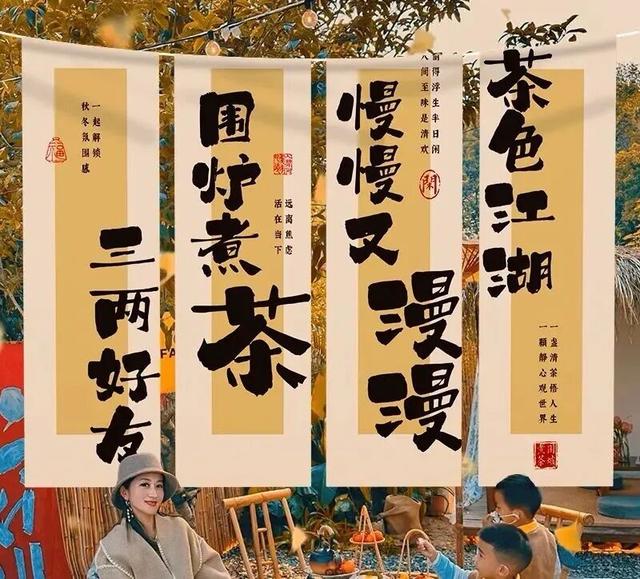 茶色江湖
一盏清茶悟人生
一顆靜心观世界
围炉煮茶
偷得浮生半日闲
人间至味是清欢
閑
慢慢又漫漫
围炉煮茶
远离焦虑
活在当下
一起解锁
秋冬氛围感
福
三两好友